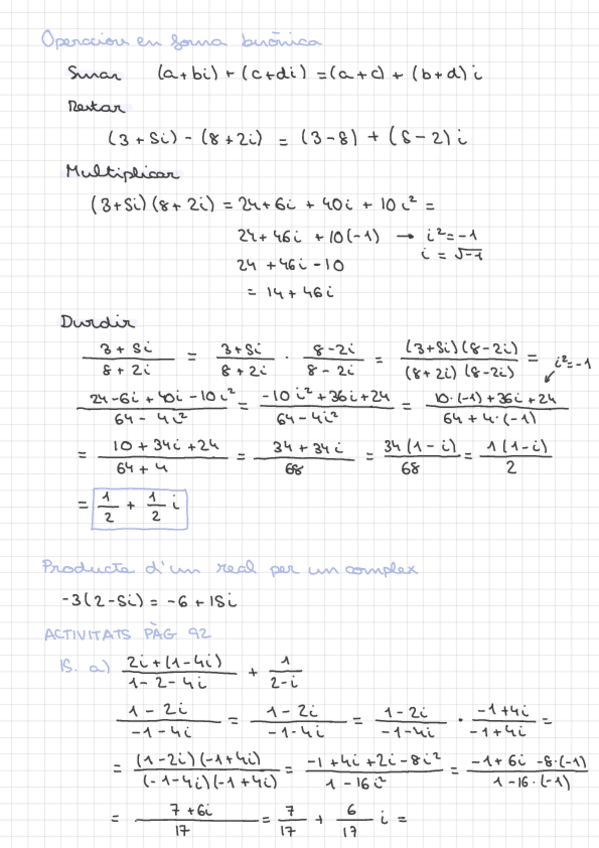 Operacions en forma binòmica
Sumar (a+bi) + (c+di) = (a+c) + (b+d) i
Restar
(3+5i) - (8+2i) = (3-8) + (5-2) i
Multiplicar
(3+5i) (8+2i) = 24+6i + 40i + 10i² =
24+46i +10(-1) → i²=-1
i = √-1
24 +46i -10
= 14+46i
Dividir
(3+5i)/(8+2i) = (3+5i)/(8+2i) · (8-2i)/(8-2i) = ((3+5i)(8-2i))/((8+2i)(8-2i)) = i²=-1
(24-6i+40i-10i²)/(64-4i²) = (-10i²+36i+24)/(64-4i²) = (10·(-1)+36i+24)/(64+4·(-1))
= (10+34i+24)/(64+4) = (34+34i)/68 = (34(1-i))/68 = (1(1-i))/2
= 1/2 + 1/2 i
Producte d'un real per un complex
-3(2-5i) = -6+15i
ACTIVITATS PÀG 92
15. a) (2i+(1-4i))/(1-2-4i) + 1/(2-i)
(1-2i)/(-1-4i) = (1-2i)/(-1-4i) = (1-2i)/(-1-4i) · (-1+4i)/(-1+4i) =
= ((1-2i)(-1+4i))/((-1-4i)(-1+4i)) = (-1+4i+2i-8i²)/(1-16i²) = (-1+6i-8·(-1))/(1-16·(-1))
= (7+6i)/17 = 7/17 + 6/17 i =